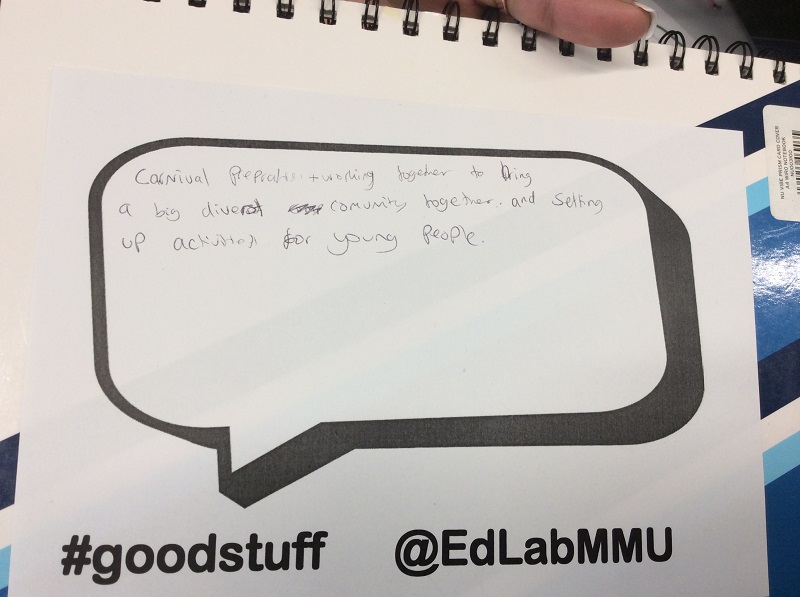 Carnival Prepration + working together to bring
a big diverst comunity together. and setting
up activities for young people.
#goodstuff @EdLabMMU
NU VIBE PRISM CARD COVER
A4 WIRO NOTEBOOK